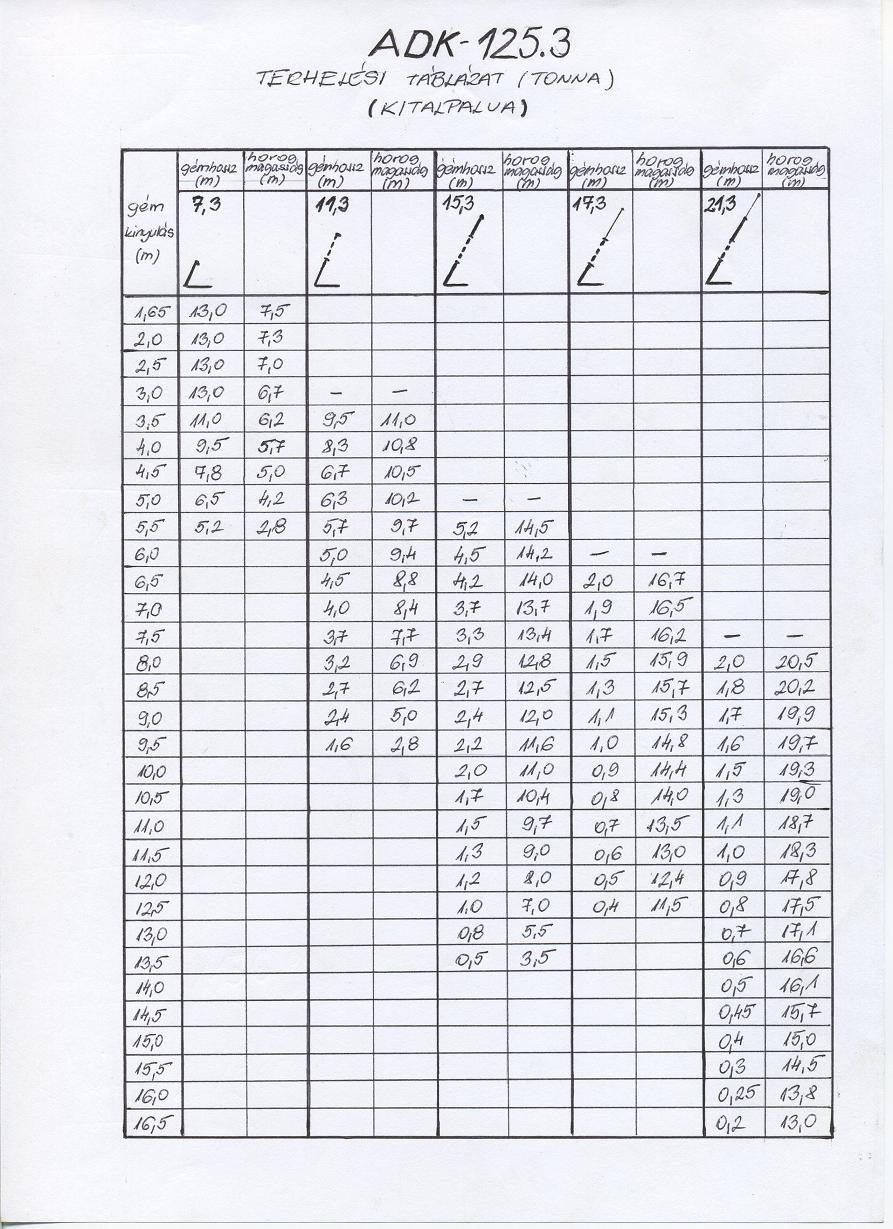 ADK-125.3
TERHELÉSI TÁBLÁZAT (TONNA)
(KITALPALVA)
gém kinyulás (m) gémhossz (m) horog magasság (m) gémhossz (m) horog magasság (m) gémhossz (m) horog magasság (m) gémhossz (m) horog magasság (m) gémhossz (m) horog magasság (m)
7,3 11,3 15,3 17,3 21,3
1,65 13,0 7,5
2,0 13,0 7,3
2,5 13,0 7,0
3,0 13,0 6,7 — —
3,5 11,0 6,2 9,5 11,0
4,0 9,5 5,7 8,3 10,8
4,5 7,8 5,0 6,7 10,5
5,0 6,5 4,2 6,3 10,2 — —
5,5 5,2 2,8 5,7 9,7 5,2 14,5
6,0 5,0 9,4 4,5 14,2 — —
6,5 4,5 8,8 4,2 14,0 2,0 16,7
7,0 4,0 8,4 3,7 13,7 1,9 16,5
7,5 3,7 7,7 3,3 13,4 1,7 16,2 — —
8,0 3,2 6,9 2,9 12,8 1,5 15,9 2,0 20,5
8,5 2,7 6,2 2,7 12,5 1,3 15,7 1,8 20,2
9,0 2,4 5,0 2,4 12,0 1,1 15,3 1,7 19,9
9,5 1,6 2,8 2,2 11,6 1,0 14,8 1,6 19,7
10,0 2,0 11,0 0,9 14,4 1,5 19,3
10,5 1,7 10,4 0,8 14,0 1,3 19,0
11,0 1,5 9,7 0,7 13,5 1,1 18,7
11,5 1,3 9,0 0,6 13,0 1,0 18,3
12,0 1,2 8,0 0,5 12,4 0,9 17,8
12,5 1,0 7,0 0,4 11,5 0,8 17,5
13,0 0,8 5,5 0,7 17,1
13,5 0,5 3,5 0,6 16,6
14,0 0,5 16,1
14,5 0,45 15,7
15,0 0,4 15,0
15,5 0,3 14,5
16,0 0,25 13,8
16,5 0,2 13,0